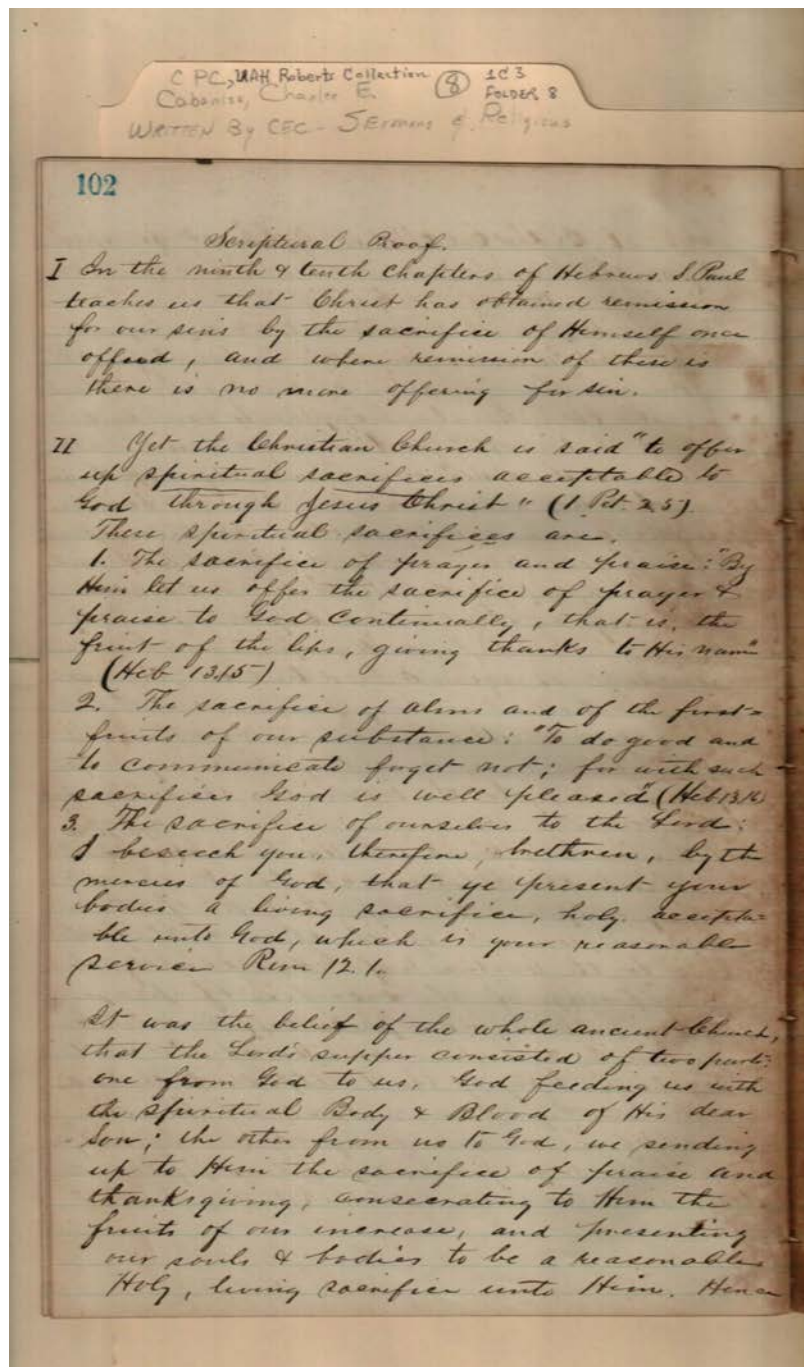 C P C, UAH Roberts Collection 8 1C3
Cabaniss, Charles E. FOLDER 8
WRITTEN By CEC - Sermons & Religious
102
Scriptural Proof.
I In the ninth & tenth chapters of Hebrews S. Paul
teaches us that Christ has obtained remission
for our sins by the sacrifice of Himself once
offered, and where remission of these is
there is no more offering for sin.
II Yet the Christian Church is said "to offer
up spiritual sacrifices acceptable to
God through Jesus Christ" (1 Pet. 2.5)
These spiritual sacrifices are.
1. The sacrifice of prayer and praise: "By
Him let us offer the sacrifice of prayer &
praise to God continually, that is, the
fruit of the lips, giving thanks to His name"
(Heb 13.15)
2. The sacrifice of alms and of the first=
fruits of our substance: "To do good and
to communicate forget not; for with such
sacrifices God is well pleased" (Heb 13.16)
3. The sacrifice of ourselves to the Lord:
I beseech you, therefore, brethren, by the
mercies of God, that ye present your
bodies a living sacrifice, holy, accepta=
ble unto God, which is your reasonable
service Rom 12.1.
It was the belief of the whole ancient Church,
that the Lord's supper consisted of two parts:
one from God to us, God feeding us with
the spiritual Body & Blood of His dear
Son; the other from us to God, we sending
up to Him the sacrifice of praise and
thanksgiving, consecrating to Him the
fruits of our increase, and presenting
our souls & bodies to be a reasonable
Holy, living sacrifice unto Him. Hence